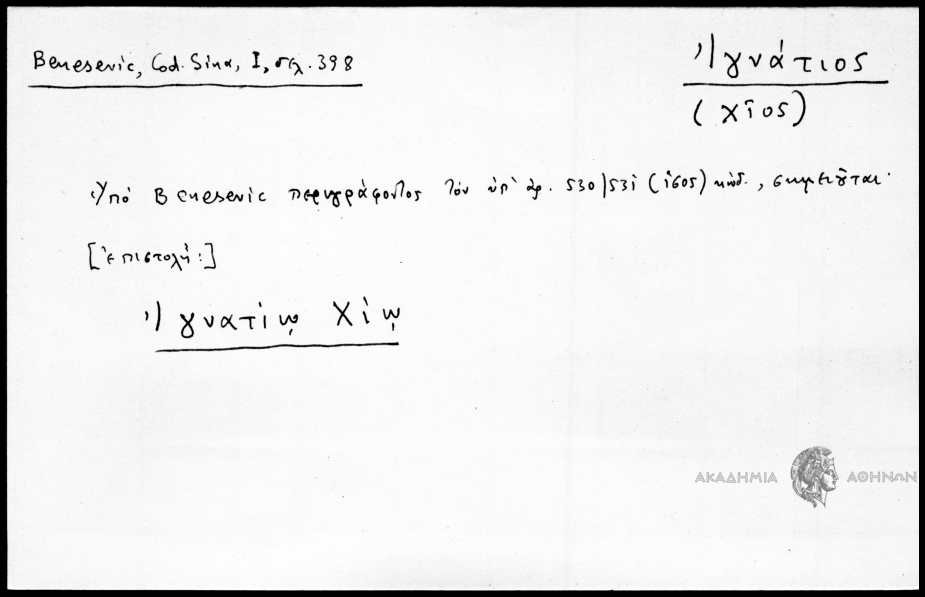 Benesevic, Cod. Sina, I, σελ. 398
Ἰγνάτιος
(Χῖος)
Ὑπὸ Benesevic περιγράφοντος τὸν ὑπ' ἀρ. 530/531 (ἴσος) κώδ., σημειοῦται·
[ἐπιστολὴ:]
Ἰγνατίῳ Χίῳ
ΑΚΑΔΗΜΙΑ ΑΘΗΝΩΝ